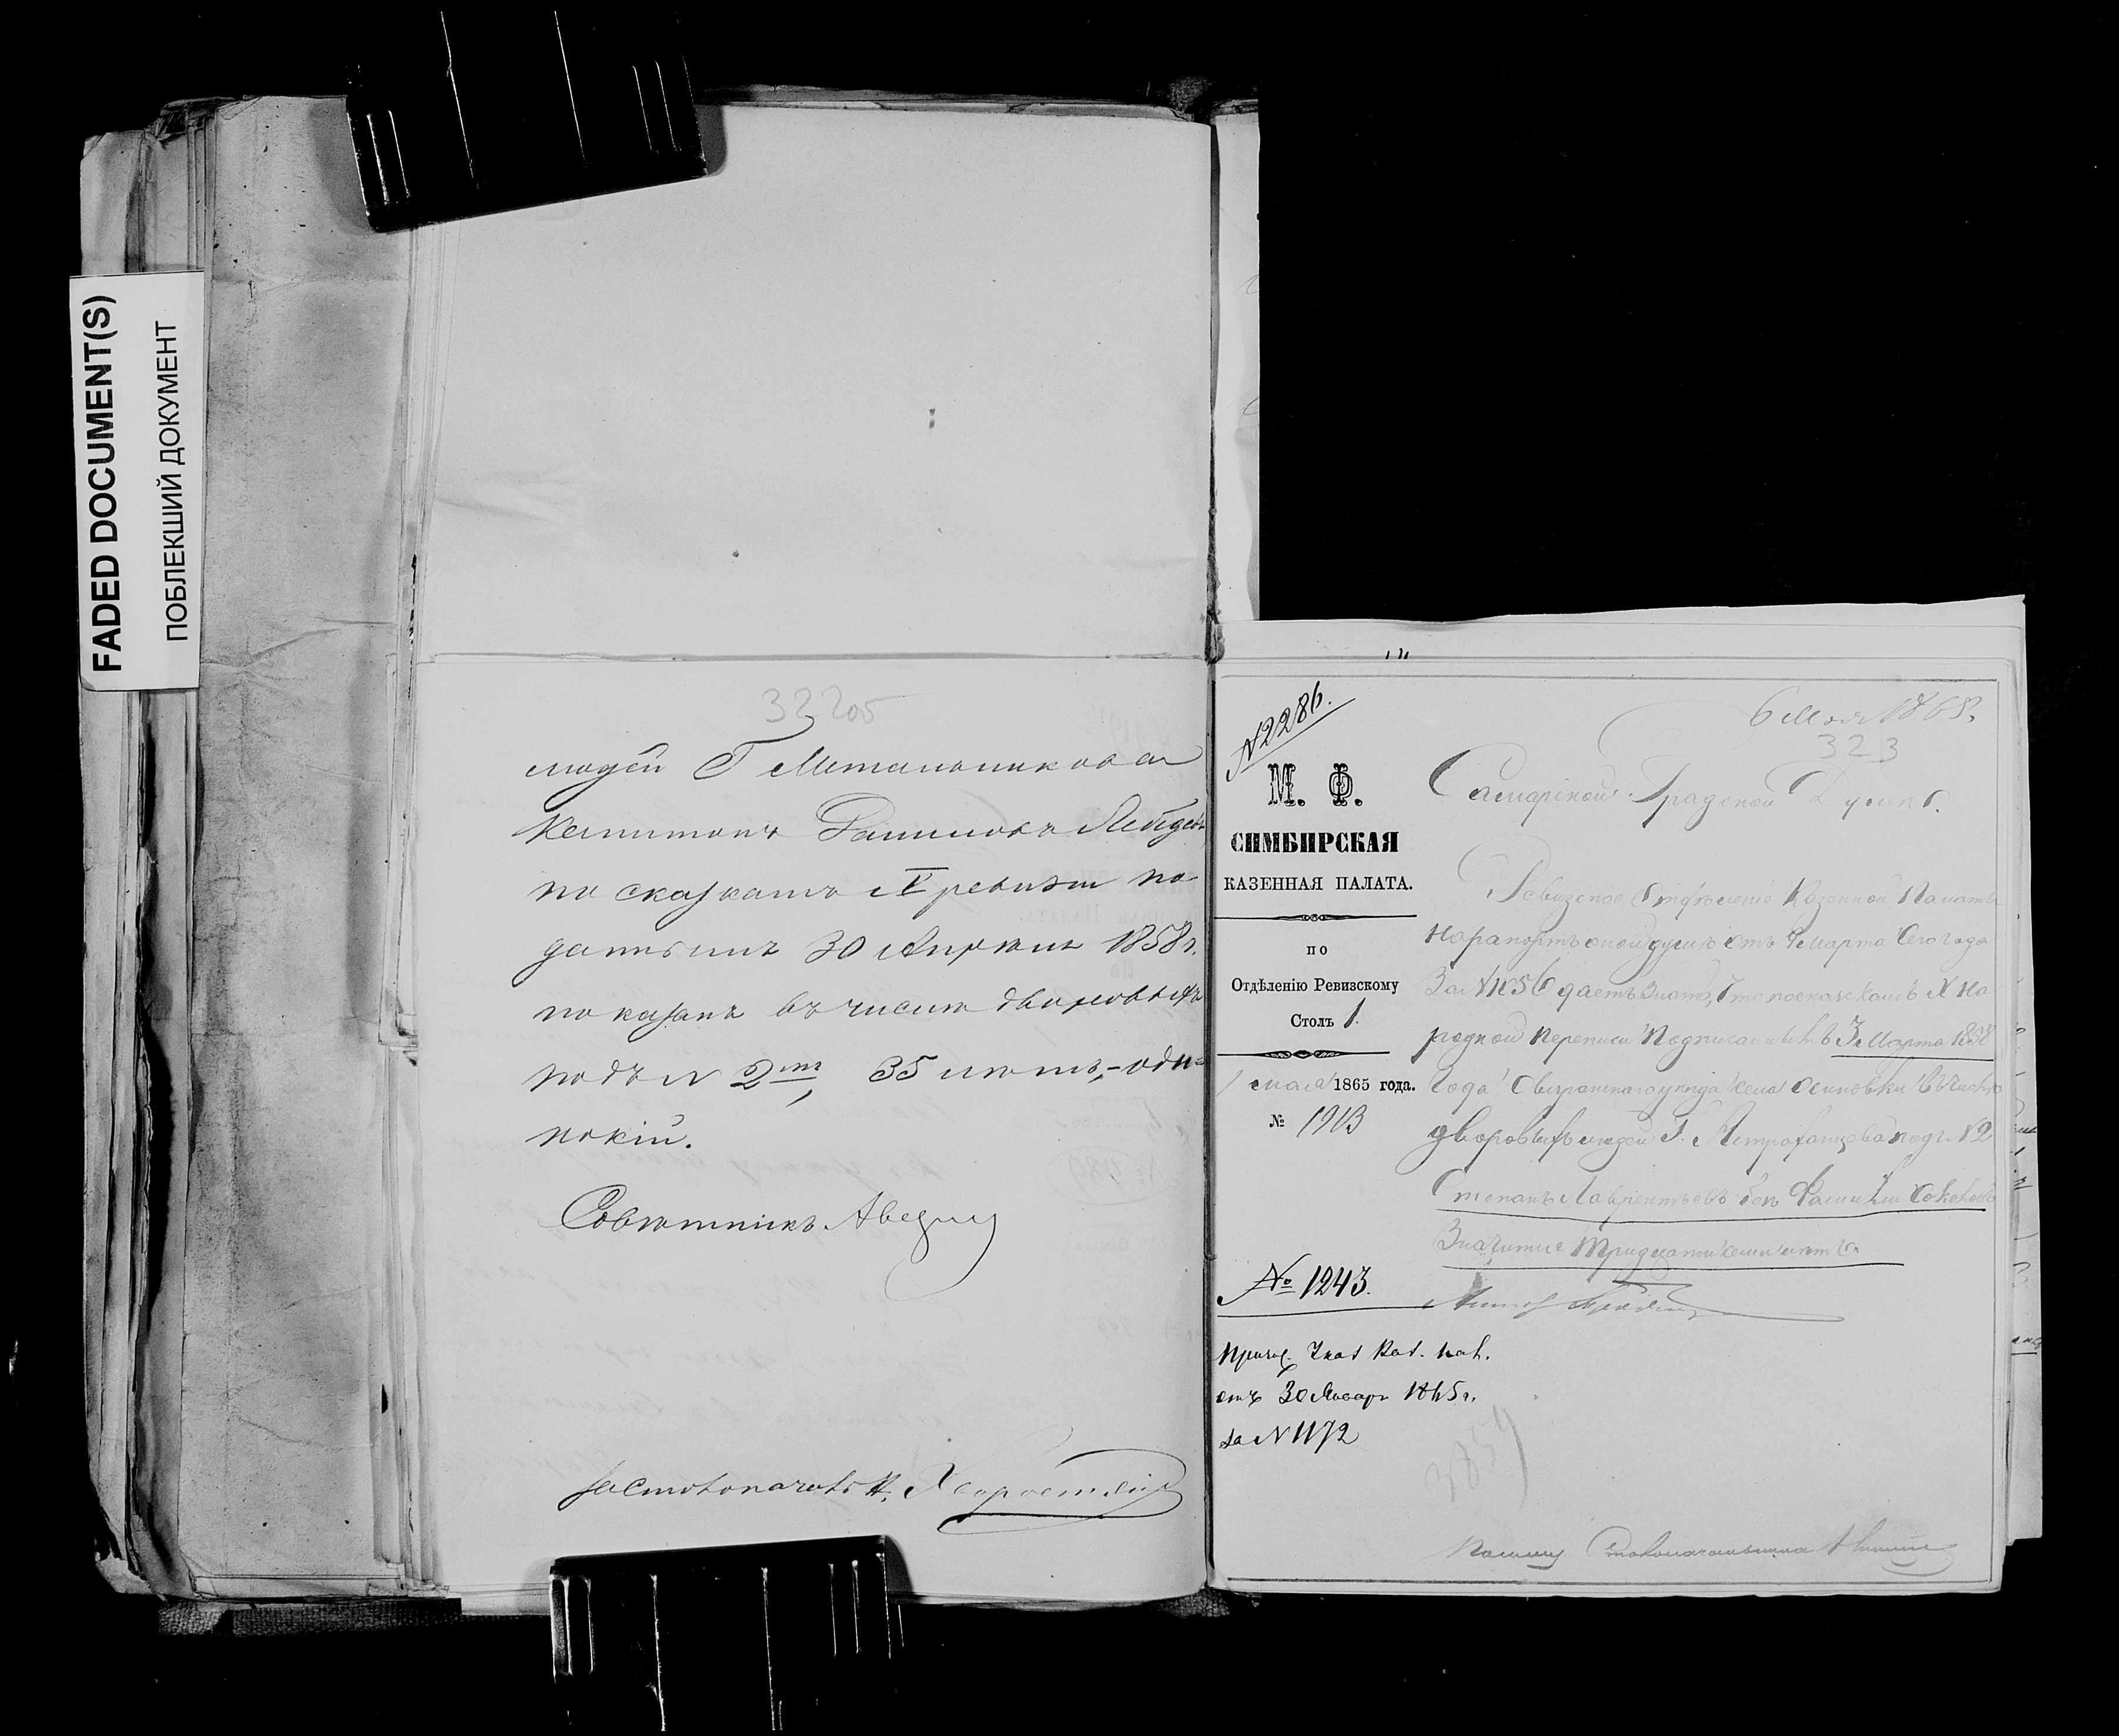 FADED DOCUMENT(S)
ПОБЛЕКШИЙ ДОКУМЕНТ
людей Г Метальникова
Капитонъ Даниловъ Лебедевъ
по сказкамъ ревизіи по
даннымъ 30 Апрѣля 1858 г.
показанъ въ числѣ дворовыхъ
подъ N 2мъ, 35 лѣтъ, – оди=
нокій.
Совѣтникъ
За Столоначальн.
N 2286.
6 Мая 1865.
323
М. Ф.
СИМБИРСКАЯ
КАЗЕННАЯ ПАЛАТА.
по
Отдѣленію Ревизскому
Столъ 1.
1 мая 1865 года.
№ 1903
№ 1243.
отъ 30 Января 1865 г.
за N 1172
Самарской Градской Думѣ.
Ревизское Отдѣленіе Казенной Палаты
На рапортъ оной думы отъ Марта Сего года
За N 1056 даетъ знать, что по сказкамъ X На
родной переписи подписаннымъ 3 Марта 1858
Года Сызранскаго уѣзда села Осиновки въ числѣ
дворовыхъ людей Г. Митрофанова подъ N 2
Степанъ Лаврентьевъ безъ Фамиліи Соколовъ
Значится тридцати семи лѣтъ
3859
Помощ Столоначальника